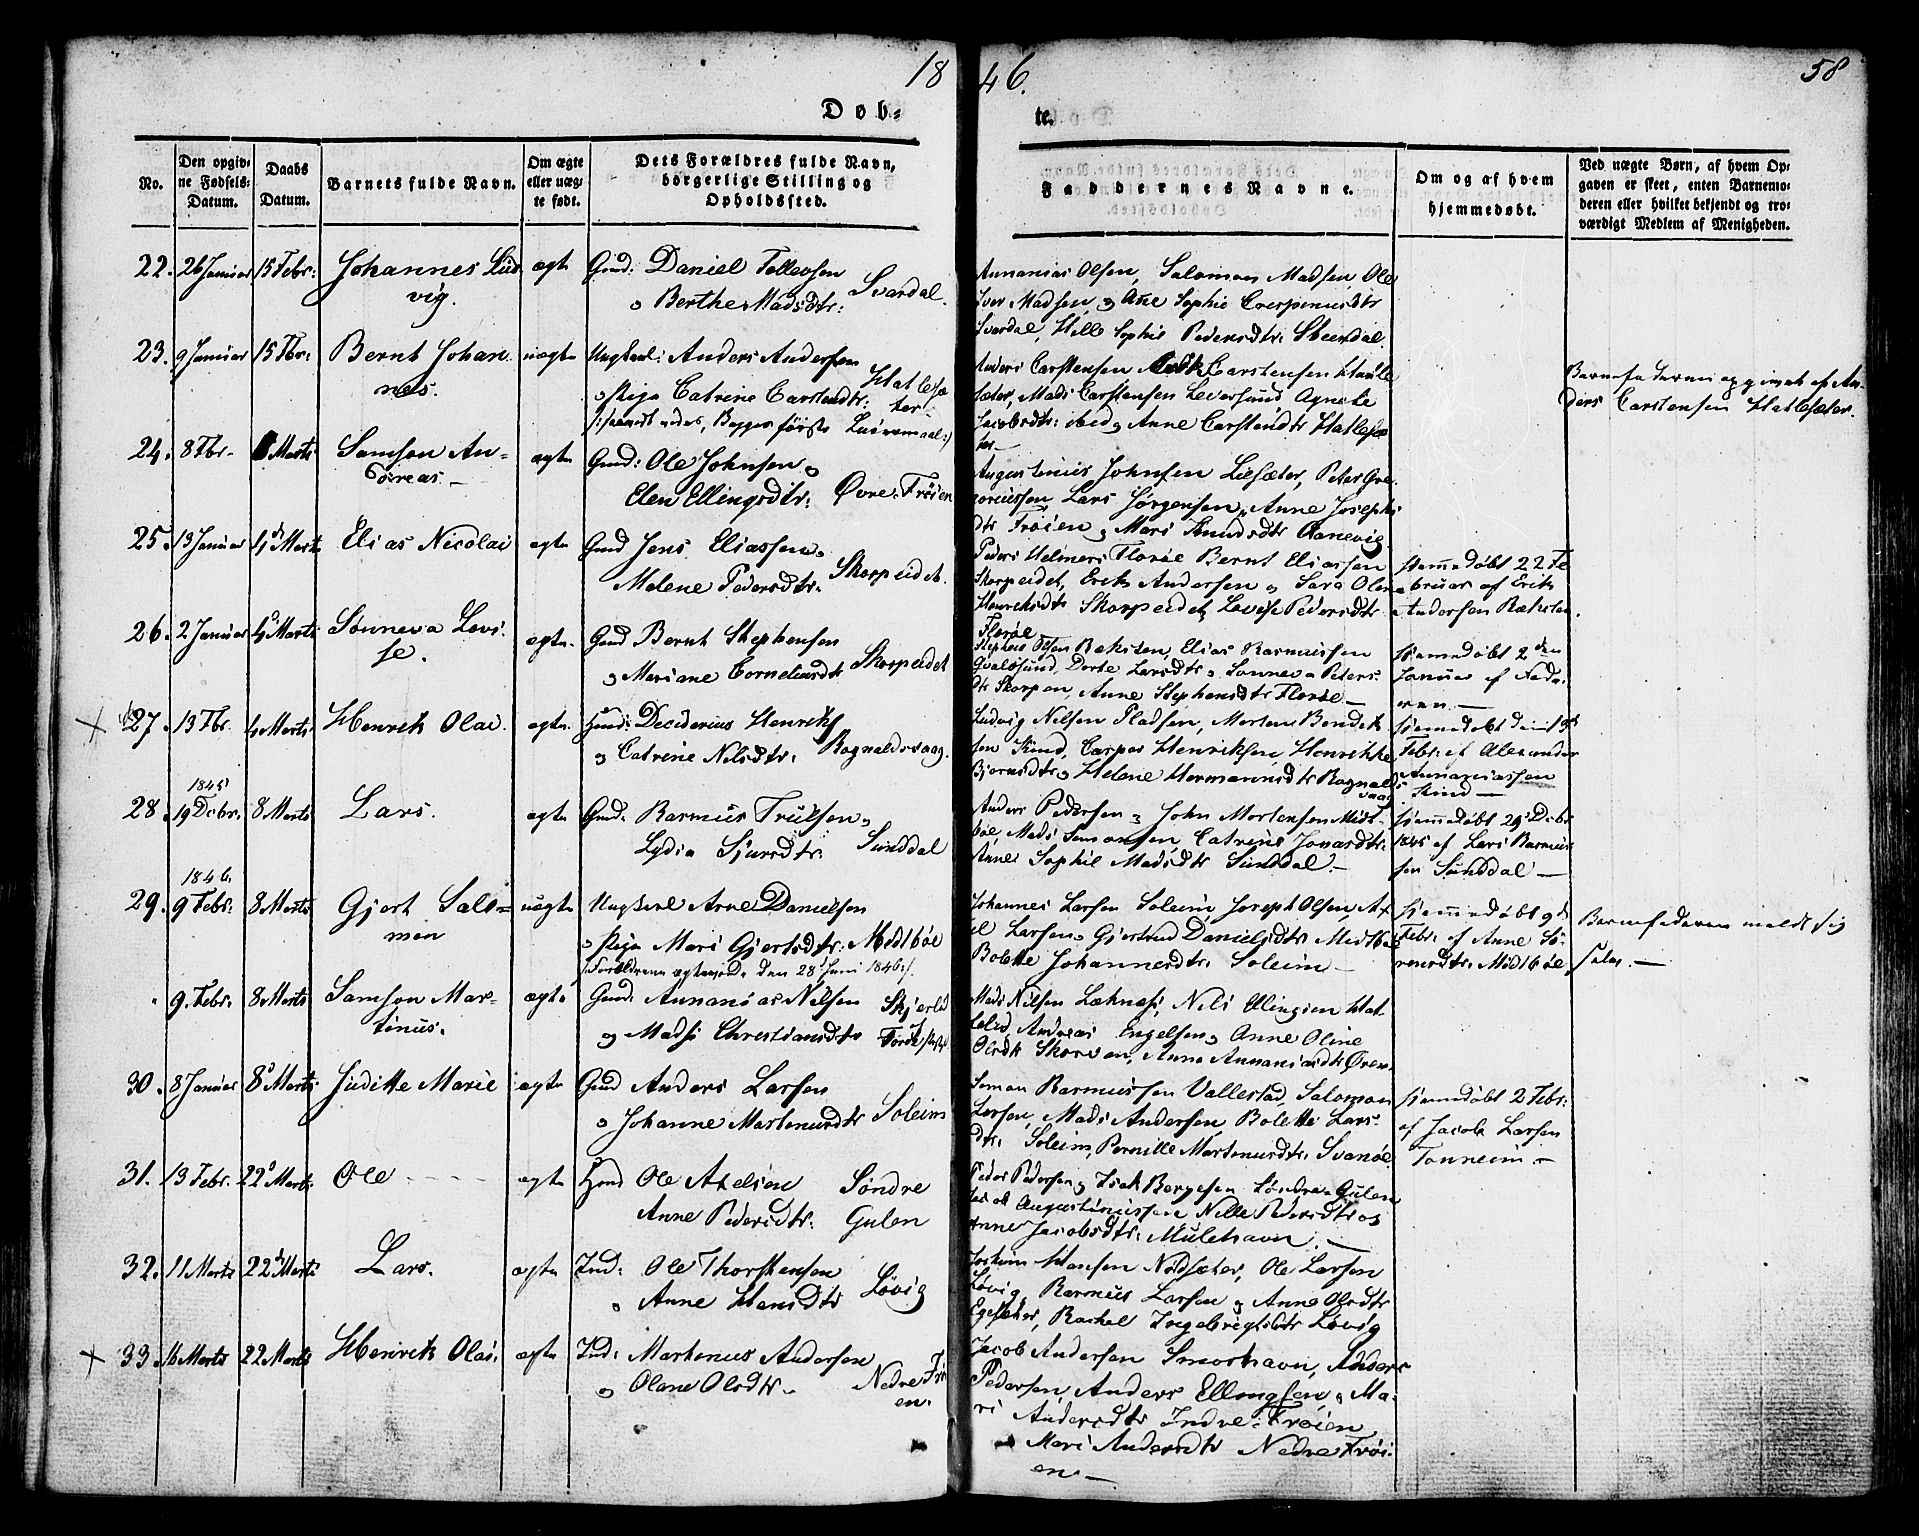 18
46.
58
Døb-
te.
No.
Den opgiv-
ne Fødsels-
Datum.
Daabs
Datum.
Barnets fulde Navn.
Om ægte
eller uæg-
te født.
Dets Forældres fulde Navn,
borgerlige Stilling og
Opholdssted.
Faddernes Navne.
Om og af hvem
hjemmedøbt.
Ved uægte Børn, af hvem Op-
gaven er skeet, enten Barnemo-
deren eller hvilket bekjendt og tro-
værdigt Medlem af Menigheden.
22. 26 Januar 15 Febr: Johannes Lud
vig.
ægte Gmd: Daniel Tollevsen
o Berthe Madsdtr: Svardal.
Annanias Olsen, Salomon Madsen, Ole
Iver Madsen, og Ane Sophie Crespinusdtr
Svardal, Helle Sophie Pedersdtr:
23. 9 Januar 15 Fbr: Bernt Johan
nes.
uægte Ungkarl: Anders Andersen
o Pige Catrine Carstendtr: Hatlesæ
ter
Anders Carstensen Carstensen Hatle
sæter, Mads Carstensen Leversund Agnete
Jacobsdtr: ibid og Anne Carstendtr Hatlesæ
ter
Barnefaderen opgivet af An
ders Carstensen Hatlesæter.
24. 8 Fbr. Marts Samson An-
dreas.
ægte Gmd: Ole Johnsen o
Elen Ellingsdtr: Øvre-Frøien
Augustinus Johnsen Liesæter, Peter Gre
goriussen Lars Jørgensen, Anne Josephs
dtr Frøien og Mari Knudsdtr Aanevig.
25. 13 Januar Marts Elias Nicolai
ægte Gmd Jens Eliassen o
Malene Pedersdtr: Skorpeidet.
Peder Helmers Florøe Bernt Eliassen
Skorpeidet, Erik Andersen og Sara Olina
Henriksdtr Skorpeidet, Lovise Pedersdtr
Florøe
hjemmedøbt 22 Fe
bruar af Erik
Andersen Baksten.
26. 2 Januar Marts Sønneva Lovi
se.
ægte. Gmd Bernt Stephensen
o Mariane Corneliusdtr Skorpeidet
Stephen Olsen Baksten, Elias Rasmussen
Qvaløsund, Dorte Larsdtr, Sønneva Peters
dtr Skorpen, Anne Stephensdtr Florøe.
hjemmedøbt 2den
Januar af Fade-
ren.
27. 13 Fbr. Marts Henrik Olai.
ægte. Huusmd: Desiderius Henriks
o Catrine Nilsdtr: Rognaldsvaag.
Ludvig Nilsen Pladsen, Morten Bendik
sen Kind, Casper Henriksen, Henrikke
Bjørnsdtr, Helene Hermansdtr Rognalds
vaag
hjemmedøbt den 13de
Febr: af Alexander
Annaniassen
Kind
1845
28. 19 Decbr. 8 Marts Lars.
ægte Gmd. Rasmus Trulsen o
Lydia Sjursdtr: Sunddal
Anders Pedersen og John Mortensen Midt-
bøe, Mads Simonsen, Catrine Jonasdtr:
Anne Sophie Madsdtr Sunddal.
hjemmedøbt 29 Decbr
1845 af Lars Rasmus
sen Sunddal
1846.
29. 9 Febr: 8 Marts Gjert Salo-
mon
uægte Ungkarl Arne Danielsen
o Pige Mari Gjertsdtr: Midtbøe
Forældrene ægteviede den 28 Juni 1846
Johannes Larsen Soleim, Joseph Olsen, Ax
el Larsen, Gjertrud Danielsdtr Midtbøe
Bolette Johannesdtr: Soleim
hjemmedøbt 9de
Febr: af Anne Sø-
rensdtr: Midtbøe,
Barnefaderen meldt sig
selv.
9. Febr: 8 Marts Samson Mar-
tinus.
ægte Gmd: Annanias Nilsen
o Madsi Christiansdtr
Mads Nilsen Læknæs, Nils Ellingsen Hat
lelid, Andreas Engelsen, Anne Oline
Olsdtr Skorven, Anne Annaniasdtr Øren.
30. 8 Januar 8 Marts Juditte Marie
ægte Gmd Anders Larsen
o Johanne Martinusdtr Soleim
Simon Rasmussen Vallestad, Salomon
Larsen, Mads Andersen, Bolette Lars-
dtr: Soleim, Pernille Martinusdtr: Svanøe
hjemmedøbt 2 Febr:
af Jacob Larsen
Tonneim.
31. 13 Febr. 22 Marts Ole
ægte Huusmd Ole Axelsen Søndre
Anne Pedersdtr: Gulen
Peder Pedersen, Isak Børgesen Søndre-Gulen
Jacob Augustinussen, Nille Pedersdtr og
Anne Jacobsdtr: Mulehavn.
32. 11 Marts 22 Marts Lars.
ægte Ind: Ole Thorstensen
o Anne Hansdtr Løvig
Joakim Hansen Nødsæter, Ole Larsen
Løvig, Rasmus Larsen, Anne Olsdtr
Egesæter, Rachel Ingebrigtsdtr Løvig
33. 16 Marts 22 Marts Henrik Olai.
ægte Ind: Martinus Andersen
o Olane Olsdtr. Nedre Frøi
en.
Jacob Andersen Smorhavn, Anders
Pedersen, Anders Ellingsen, og Ma-
ri Andersdtr Indre-Frøien
Mari Andersdtr Nedre Frøi-
en.